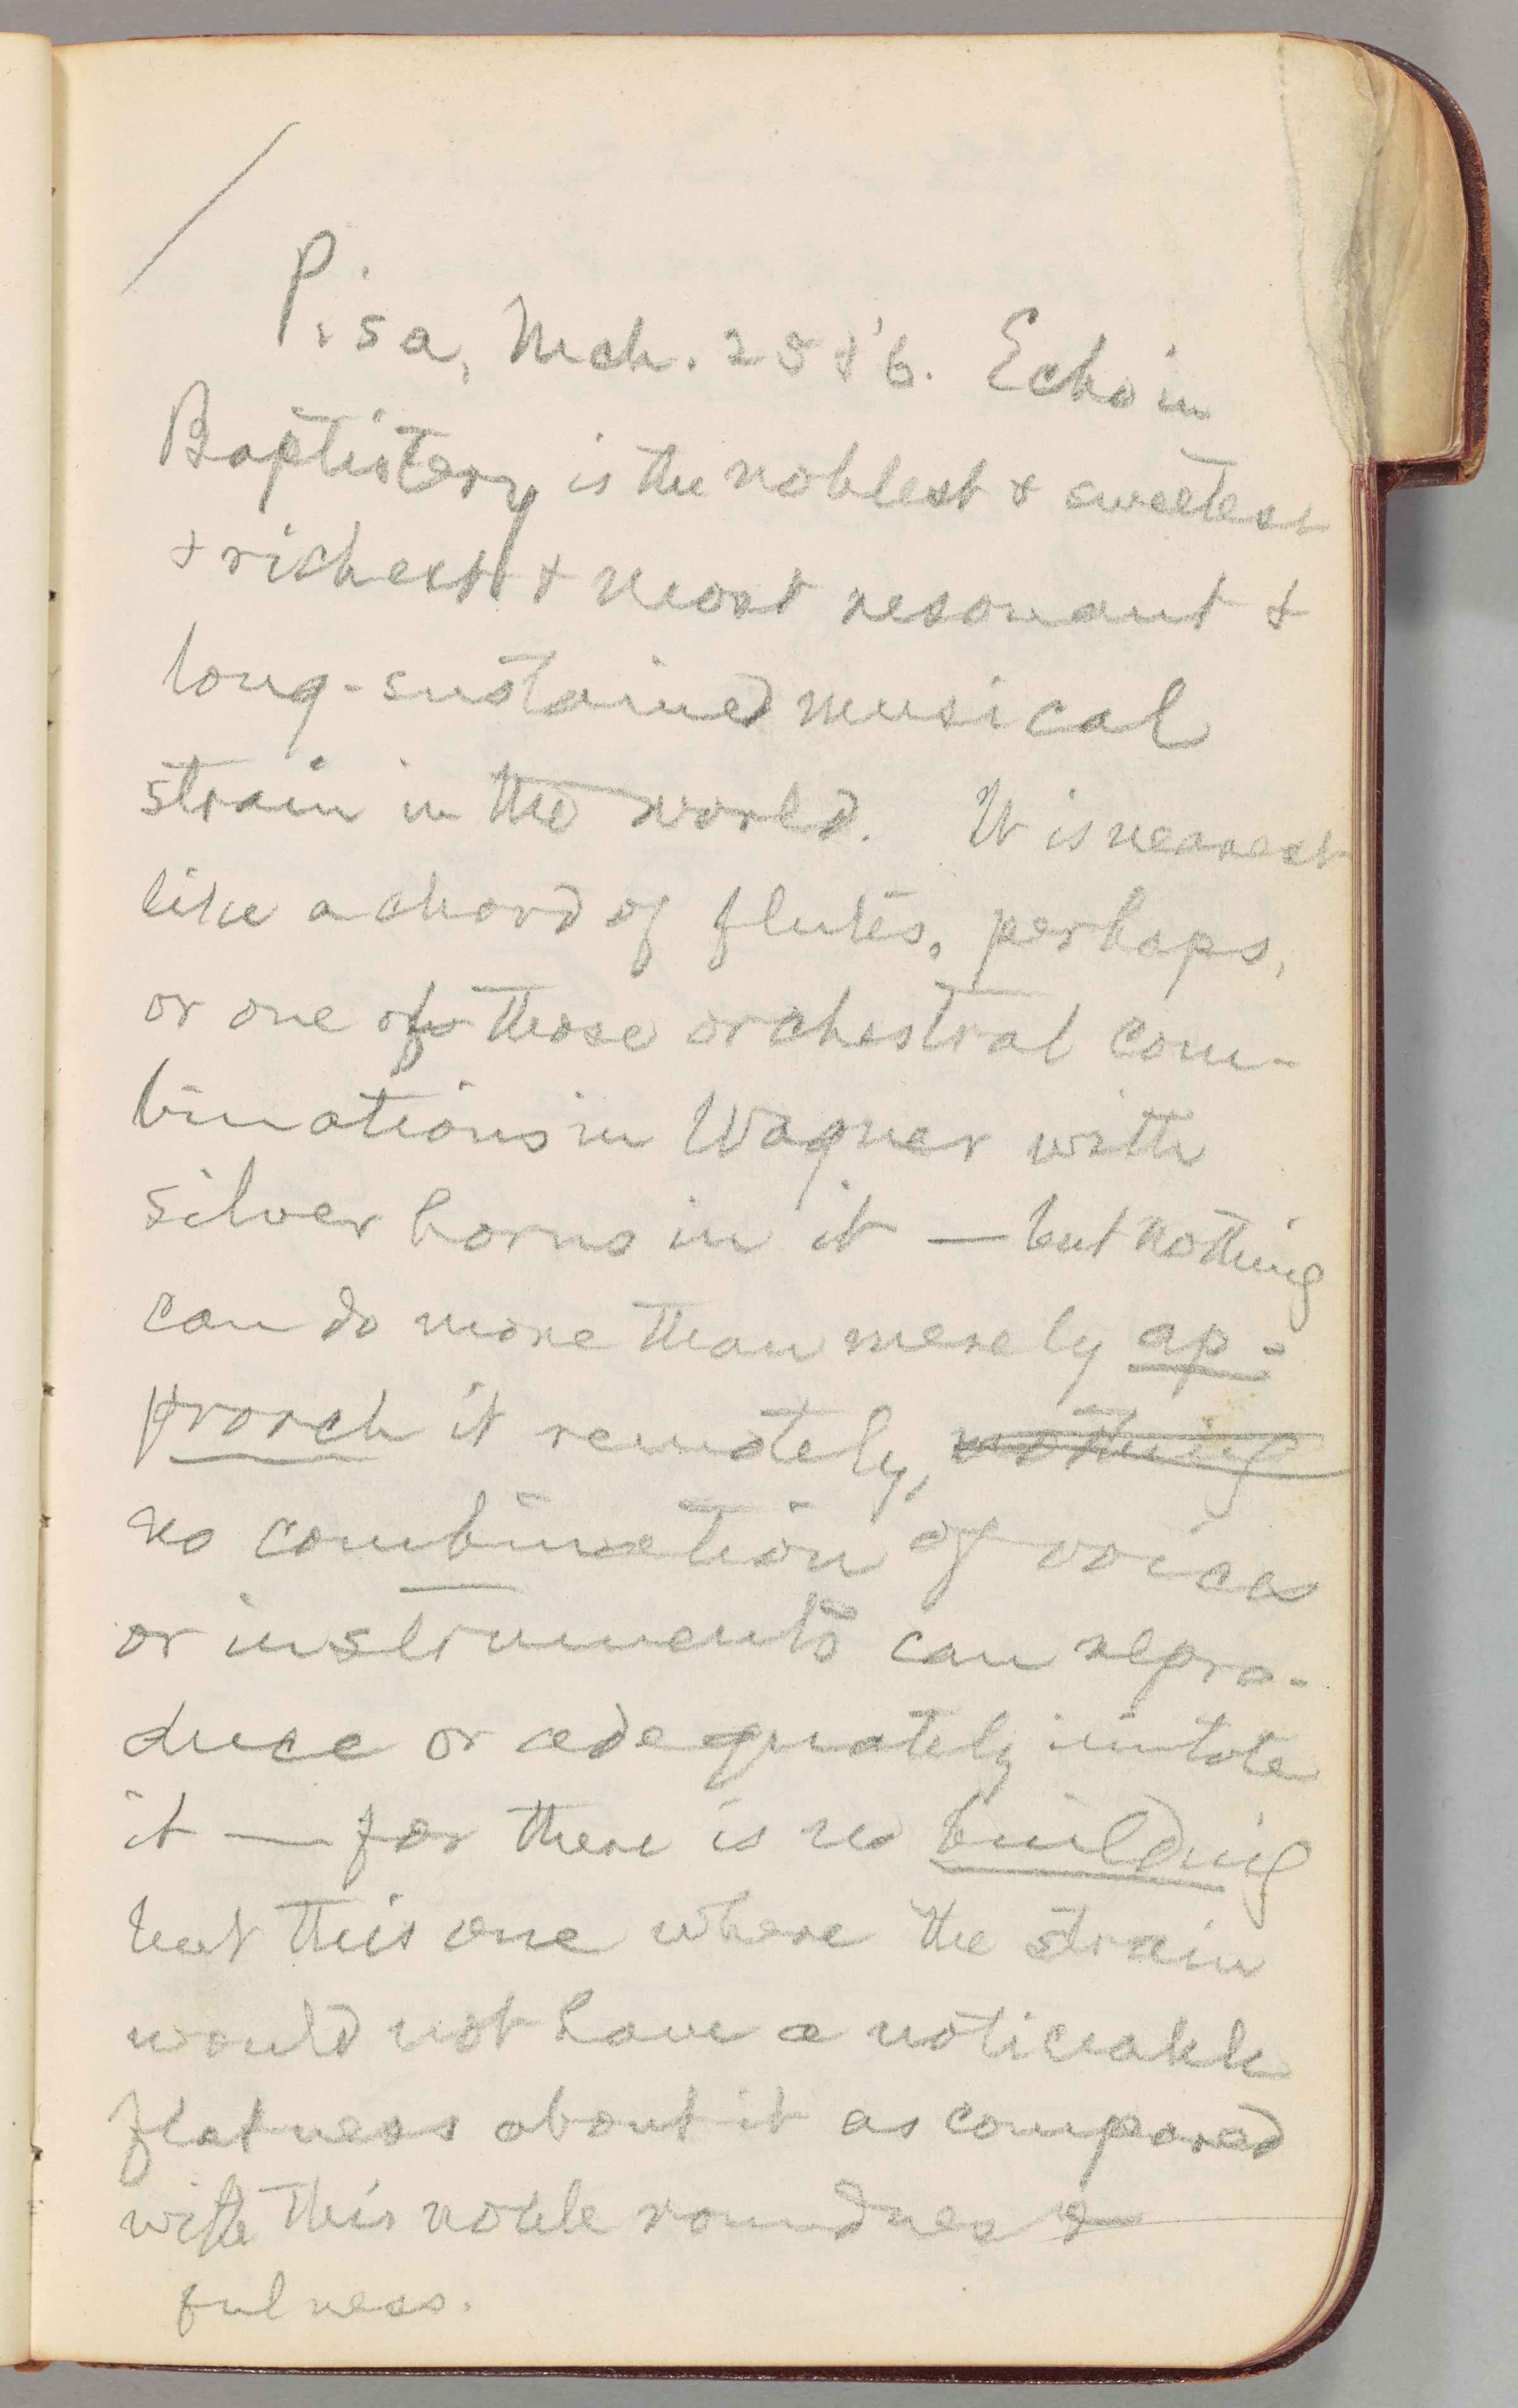 Pisa, Mch. 25 & '6. Echo in
Baptistery is the noblest & sweetest
& richest & most resonant &
long-sustained musical
strain in the world. It is nearest
like a chord of flutes, perhaps,
or one of those orchestral com-
binations in Wagner with
silver horns in it — but nothing
can do more than merely ap-
proach it remotely, nothing
no combination of voices
or instruments can repro-
duce or adequately imitate
it — for there is no building
but this one where the strain
would not have a noticeable
flatness about it as compared
with this noble roundness &
fulness.